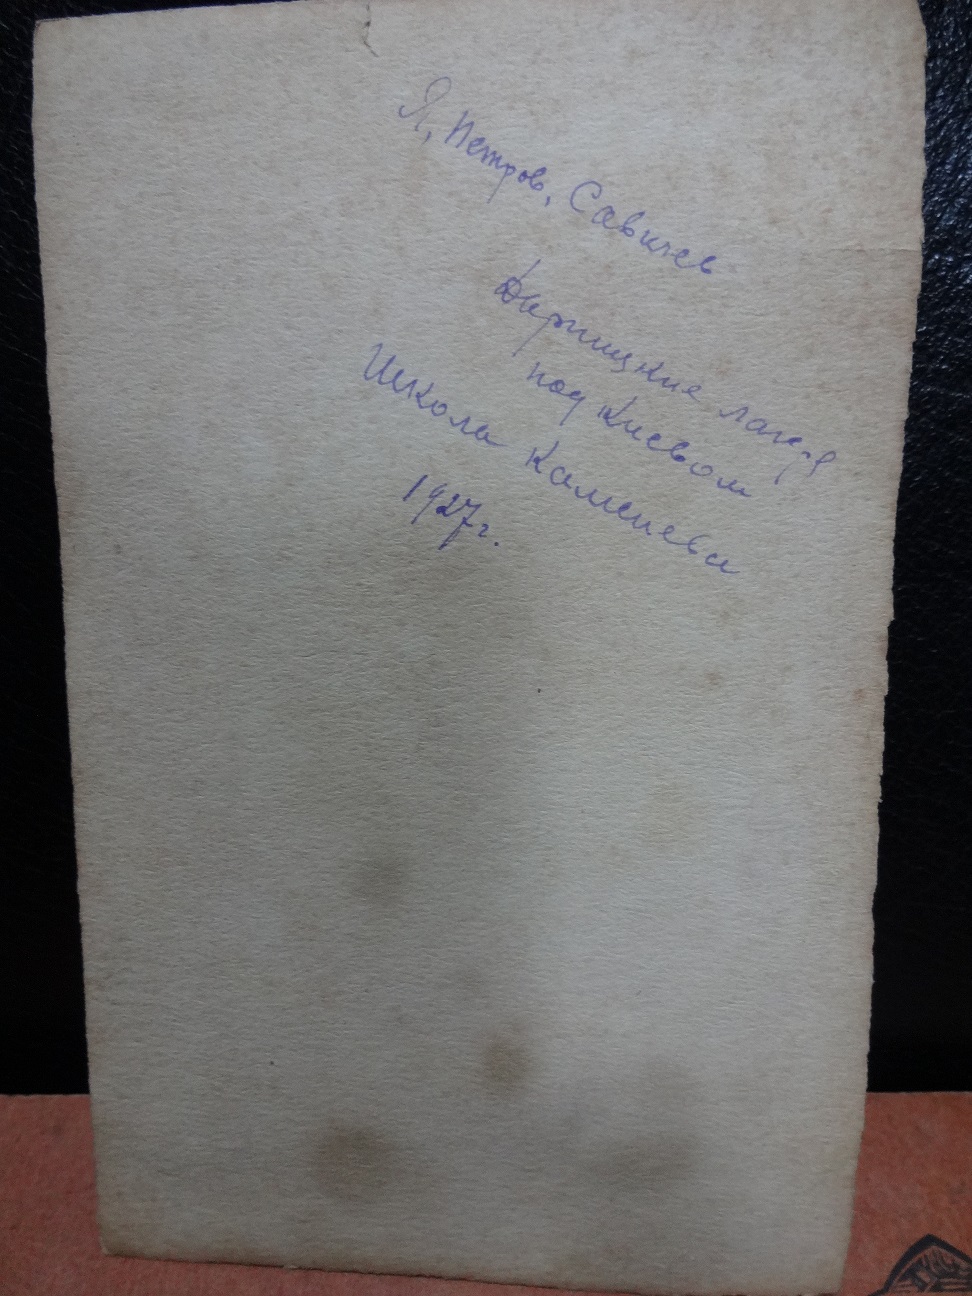 Я, Петров, Савичев
Дарницкие лагеря
под Киевом
Школа Каменева
1927 г.